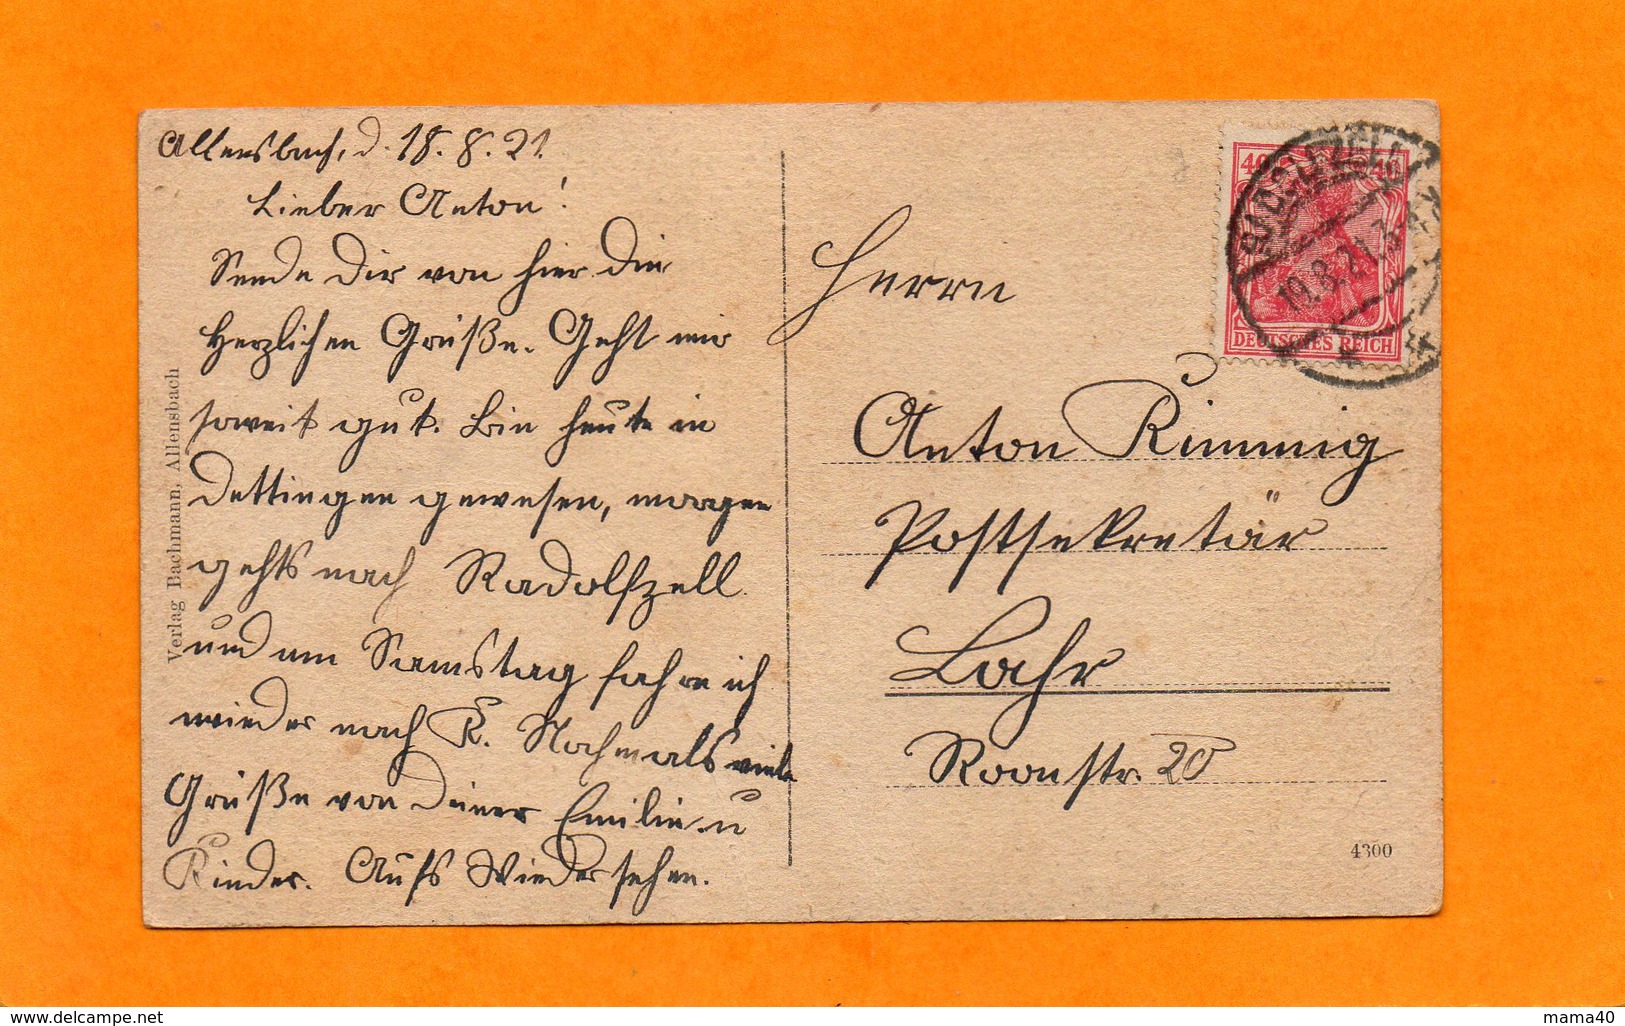 Allensbach, d. 18.8.21.
Lieber Anton!
Sende Dir von hier die
Herzlichen Grüße. Geht mir
soweit gut. Bin heute in
Dettingen gewesen, morgen
gehts nach Radolfzell
und am Samstag fahre ich
wieder nach K. Nochmals viele
Grüße von deiner Emilie u
Kinder. Aufs Wiedersehen.
Verlag Bachmann, Allensbach
40 40
DEUTSCHES REICH
RADOLFZELL
19.8.21
Herrn
Anton Rimmig
Postsekretär
Lahr
Roonstr. 20
4300
www.delcampe.net
mama40